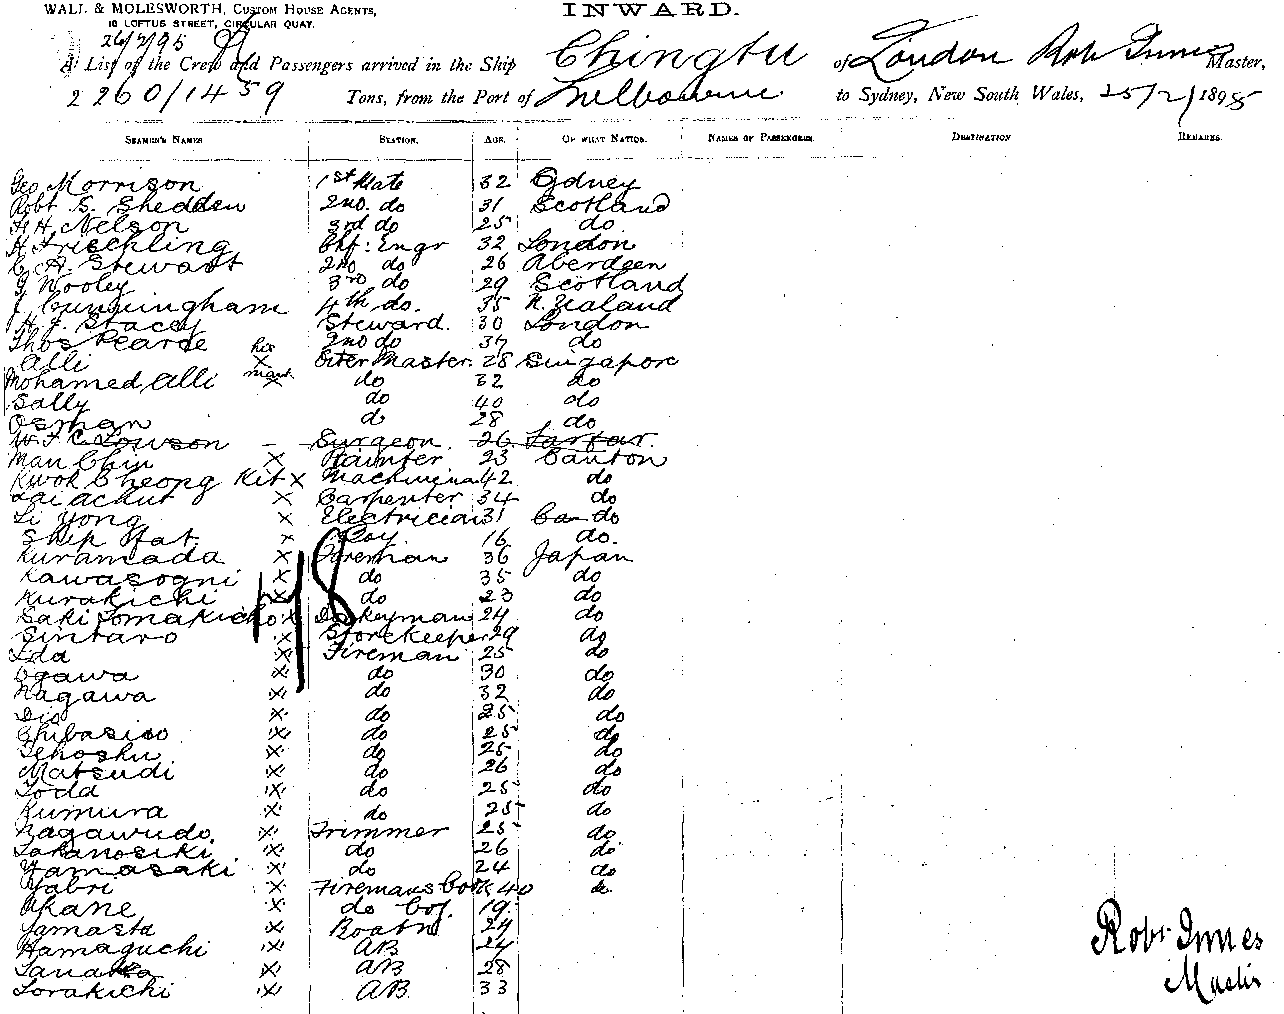 WALL & MOLESWORTH, CUSTOM HOUSE AGENTS,
10 LOFTUS STREET, CIRCULAR QUAY.
INWARD.
26/2/95
A List of the Crew and Passengers arrived in the Ship Chingtu of London Robt Innes Master,
2260/1459 Tons, from the Port of Melbourne to Sydney, New South Wales, 25/2/1895
SEAMEN'S NAMES STATION. AGE. OF WHAT NATION. NAMES OF PASSENGERS. DESTINATION REMARKS.
Geo Morrison 1st Mate 32 Sydney
Robt S. Shedden 2nd. do 31 Scotland
H H. Nelson 3rd do 25 do
H Frischling Chf: Engr 32 London
C. A. Stewart 2nd do 26 Aberdeen
G Wooley 3rd do 29 Scotland
J. Cunningham 4th do. 35 N. Zealand
H. J. Stacey Steward. 30 London
Thos Pearce 2nd do 37 do
Alli his X mark Qter Master. 28 Singapore
Mohamed Alli X do 32 do
Sally do 40 do
Osman do 28 do
W. F. C. Lowson Surgeon 26
Man Chin X Painter 23 Canton
Kwok Cheong Kit X 42 do
Lai Achut X Carpenter 34 do
Li Yong X Electrician 31 do
Ship Fat X Boy 16 do.
Kuramada X Fireman 36 Japan
Kawasogni X do 35 do
Kurakichi X do 23 do
Saki Tomakicho X Donkeyman 24 do
Sintaro X Storekeeper 29 do
Ida X Fireman 25 do
Ogawa X do 30 do
Nagawa X do 32 do
Dio X do 25 do
Chibasiso X do 25 do
Tehoshu X do 25 do
Matsudi X do 26 do
Todd X do 25 do
Kumura X do 25 do
Nagawudo X Trimmer 25 do
Takanosiki X do 26 do
Yamasaki X do 24 do
Yabri X Firemans Cook 40 do
Akane X do Boy. 19
Yamasta X Boatn 29
Hamaguchi X AB 24
Tanaka X AB 28
Torakichi X AB 33
48
Robt Innes
Master